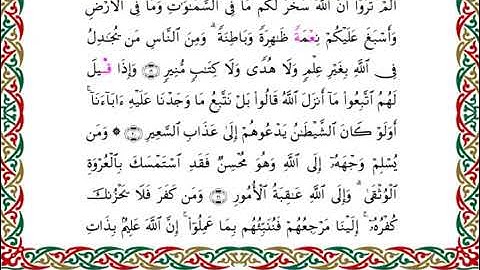 أَلَمْ تَرَوْا۟ أَنَّ ٱللَّهَ سَخَّرَ لَكُم مَّا فِى ٱلسَّمَٰوَٰتِ وَمَا فِى ٱلْأَرْضِ
وَأَسْبَغَ عَلَيْكُمْ نِعْمَةً ظَٰهِرَةً وَبَاطِنَةً ۗ وَمِنَ ٱلنَّاسِ مَن يُجَٰدِلُ
فِى ٱللَّهِ بِغَيْرِ عِلْمٍ وَلَا هُدًى وَلَا كِتَٰبٍ مُّنِيرٍ ۝ وَإِذَا قِيلَ
لَهُمُ ٱتَّبِعُوا۟ مَآ أَنزَلَ ٱللَّهُ قَالُوا۟ بَلْ نَتَّبِعُ مَا وَجَدْنَا عَلَيْهِ ءَابَآءَنَآ ۚ
أَوَلَوْ كَانَ ٱلشَّيْطَٰنُ يَدْعُوهُمْ إِلَىٰ عَذَابِ ٱلسَّعِيرِ ۝ ۞ وَمَن
يُسْلِمْ وَجْهَهُۥٓ إِلَى ٱللَّهِ وَهُوَ مُحْسِنٌ فَقَدِ ٱسْتَمْسَكَ بِٱلْعُرْوَةِ
ٱلْوُثْقَىٰ ۗ وَإِلَى ٱللَّهِ عَٰقِبَةُ ٱلْأُمُورِ ۝ وَمَن كَفَرَ فَلَا يَحْزُنكَ
كُفْرُهُۥٓ ۚ إِلَيْنَا مَرْجِعُهُمْ فَنُنَبِّئُهُم بِمَا عَمِلُوٓا۟ ۚ إِنَّ ٱللَّهَ عَلِيمٌۢ بِذَاتِ